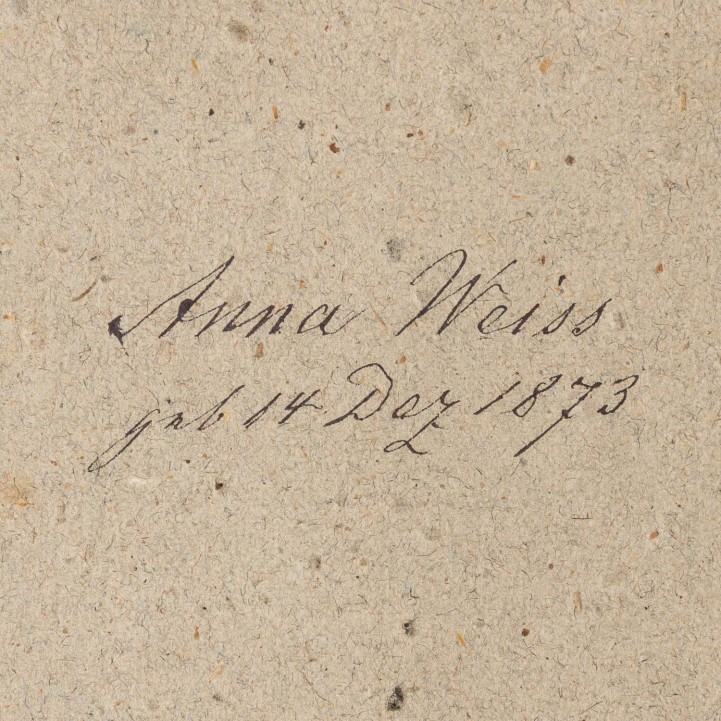 Anna Weiss
geb 14 Dez 1873